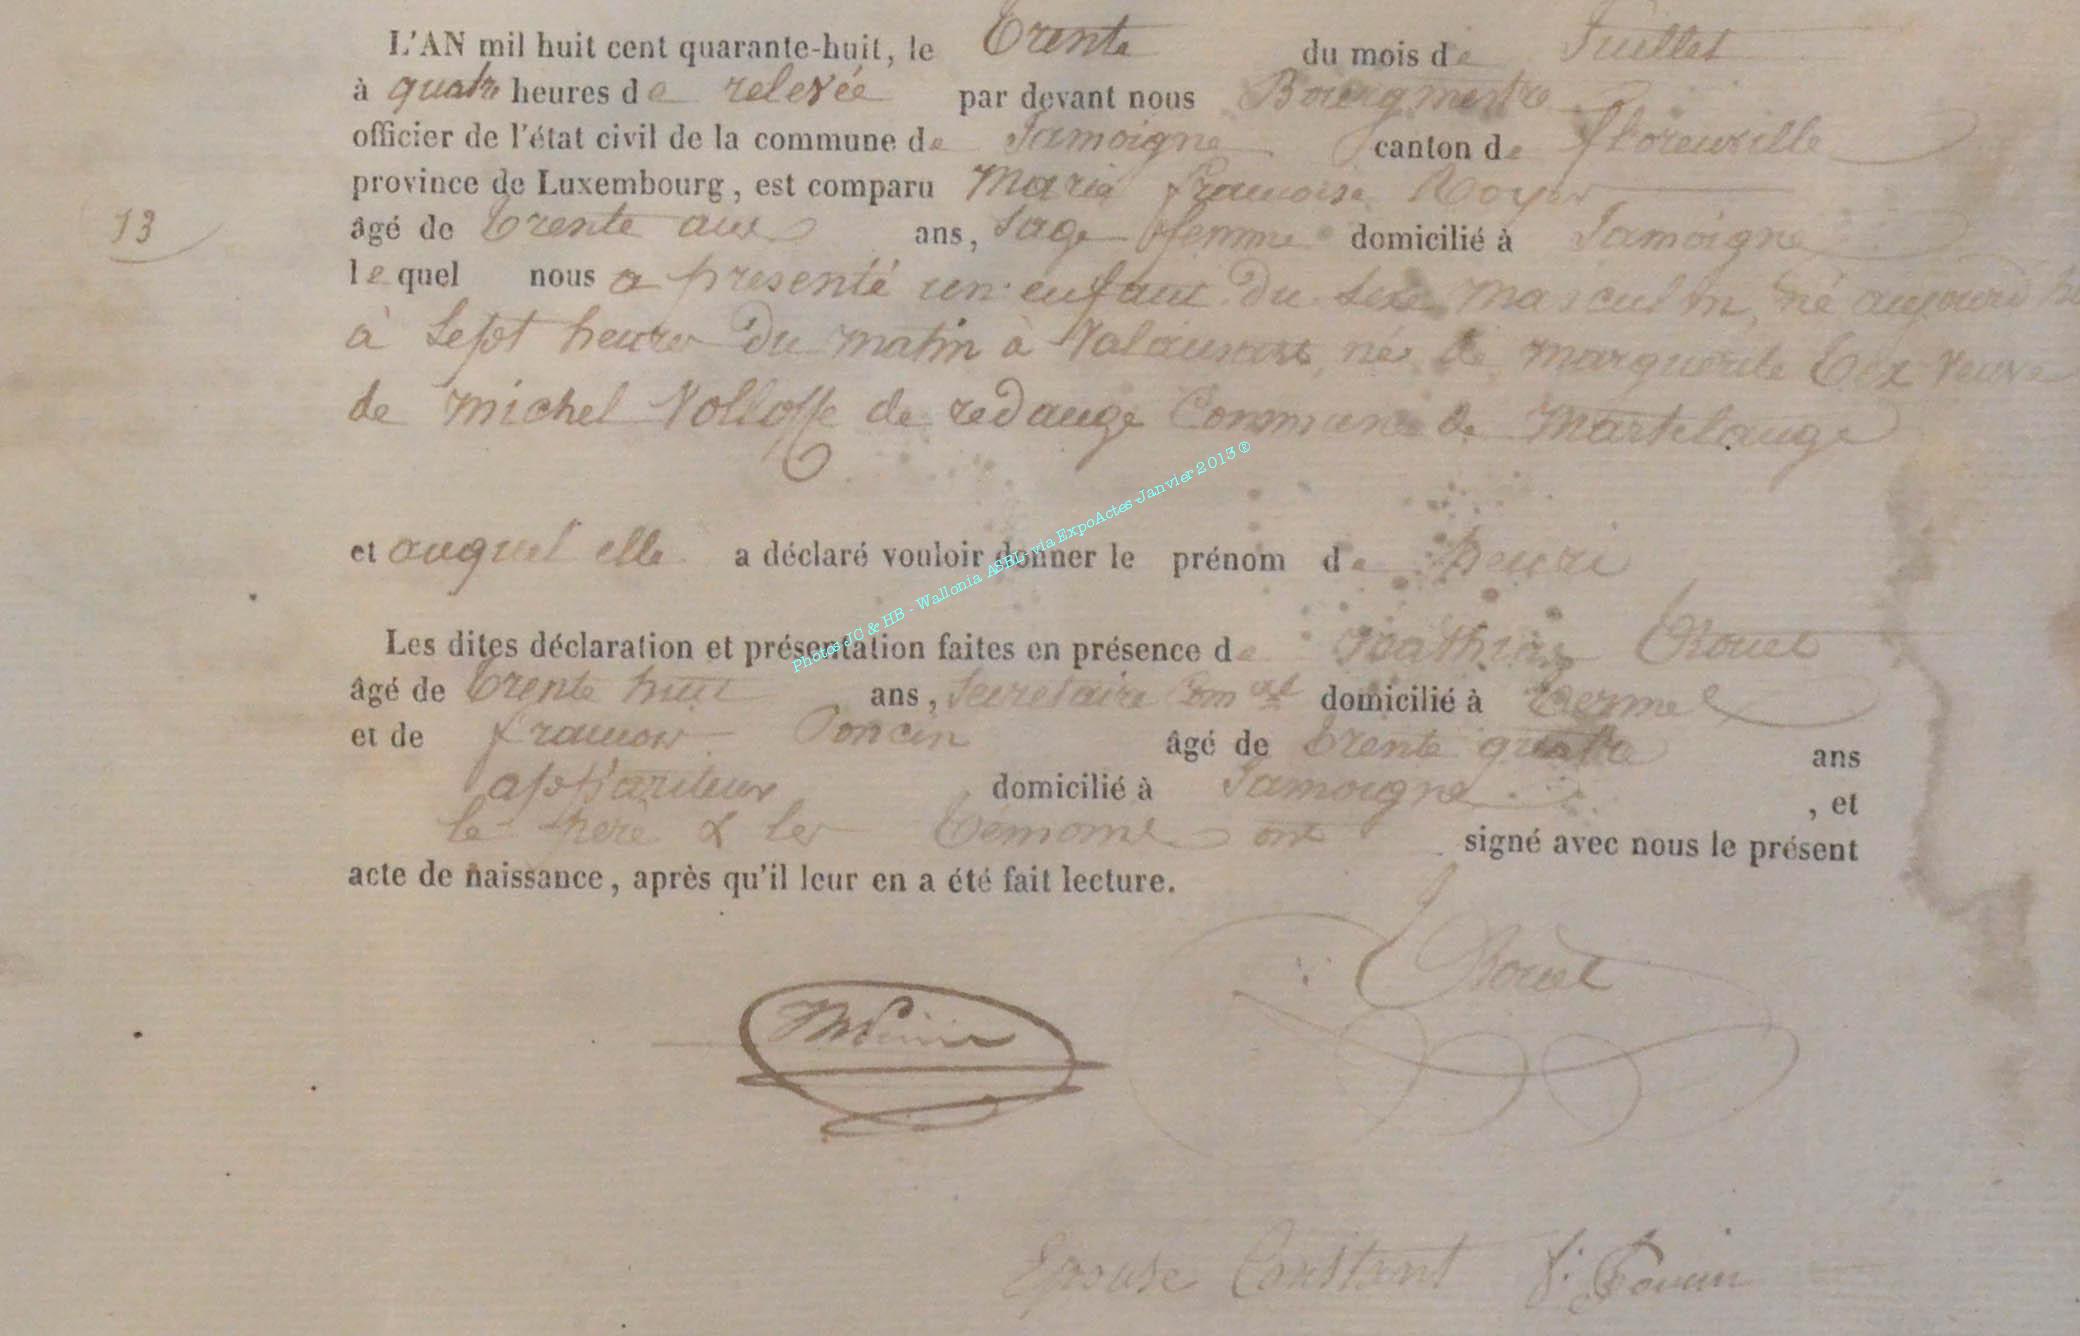 L'AN mil huit cent quarante-huit, le Trente du mois de Juillet
à quatre heures de relevée par devant nous Bourgmestre
officier de l'état civil de la commune de Jamoigne canton de florenville
province de Luxembourg, est comparu Marie françoise Royer
âgé de Trente ans, Sage femme domicilié à Jamoigne
13
lequel nous a présenté un enfant du sexe masculin, né aujourd'hu
à Sept heures du matin à Valansart, né de marguerite Veuve
de michel Volloffe de redange Commune de Martelange
et auquel elle a déclaré vouloir donner le prénom de henri
Les dites déclaration et présentation faites en présence de Mathias
âgé de Trente huit ans, Secretaire Comal domicilié à Termes
et de françois Poncin âgé de Trente quatre ans
appariteur domicilié à Jamoigne, et
le père & les Témoins ont signé avec nous le présent
acte de naissance, après qu'il leur en a été fait lecture.
Epouse Constant f. Poncin
Photos JC & HB - Wallonia ASBL- via ExpoActes-Janvier 2013 ®